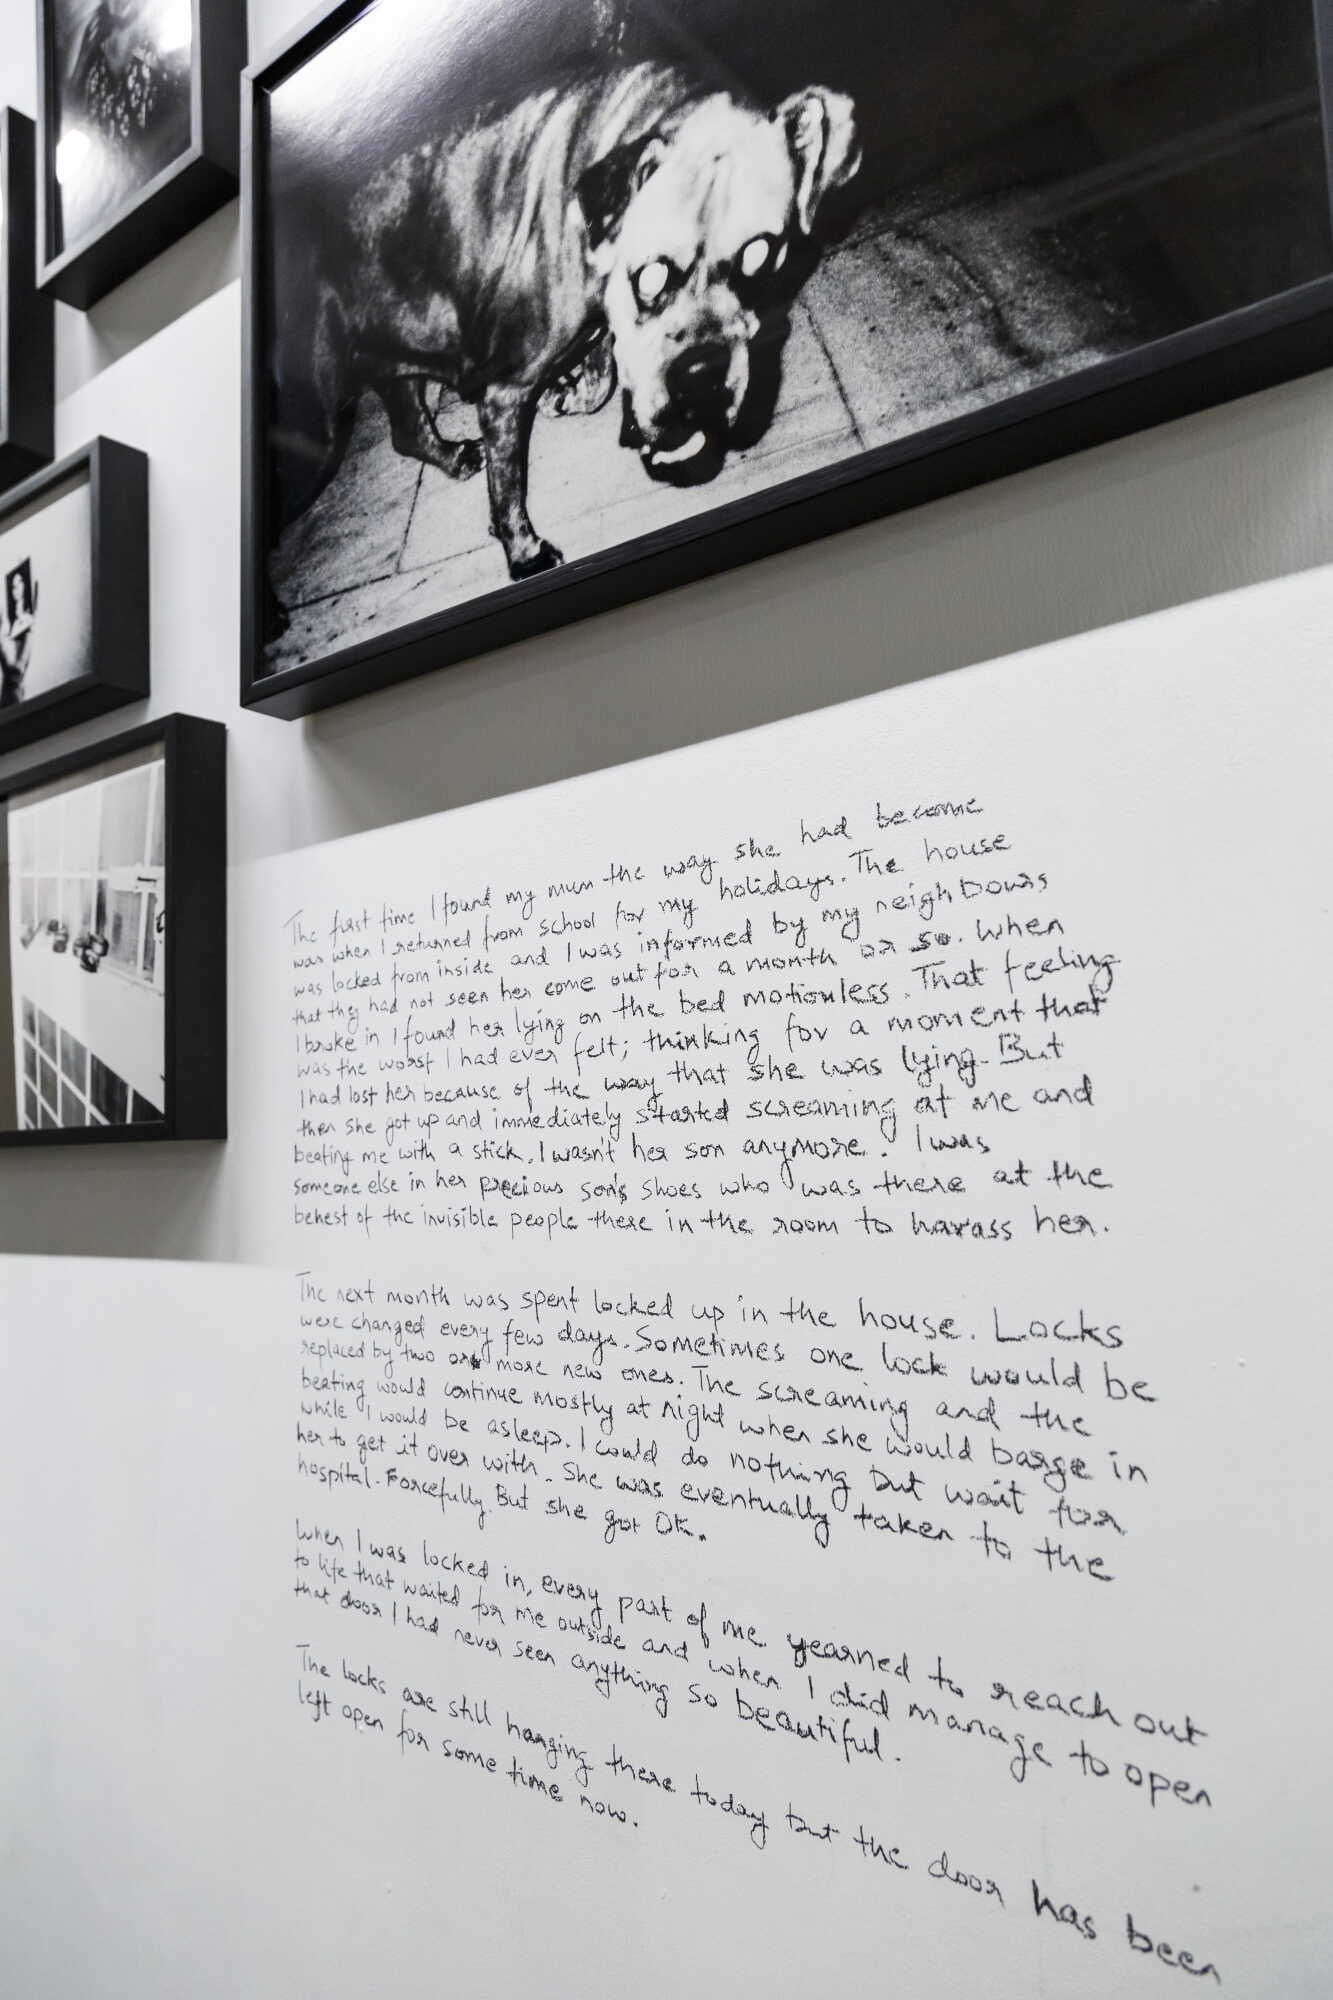 The first time I found my mum the way she had become
was when I returned from school for my holidays. The house
was locked from inside and I was informed by my neighbours
that they had not seen her come out for a month or so. When
I broke in I found her lying on the bed motionless. That feeling
was the worst I had ever felt; thinking for a moment that
I had lost her because of the way that she was lying. But
then she got up and immediately started screaming at me and
beating me with a stick. I wasn't her son anymore. I was
someone else in her precious son's shoes who was there at the
behest of the invisible people there in the room to harass her.
The next month was spent locked up in the house. Locks
were changed every few days. Sometimes one lock would be
replaced by two or more new ones. The screaming and the
beating would continue mostly at night when she would barge in
while I would be asleep. I could do nothing but wait for
her to get it over with. She was eventually taken to the
hospital. Forcefully. But she got OK.
When I was locked in, every part of me yearned to reach out
to life that waited for me outside and when I did manage to open
that door I had never seen anything so beautiful.
The locks are still hanging there today but the door has been
left open for some time now.